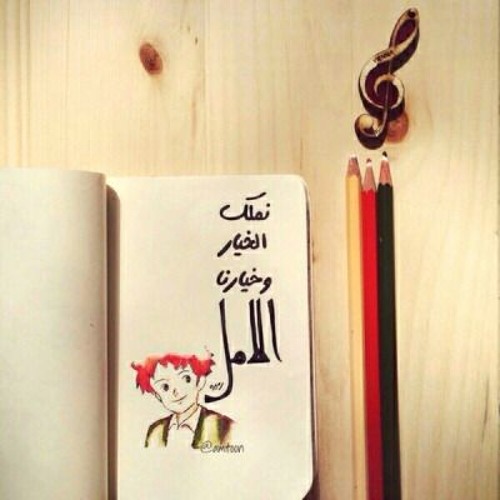 نملك
الخيار
وخيارنا
الامل
@amtoon